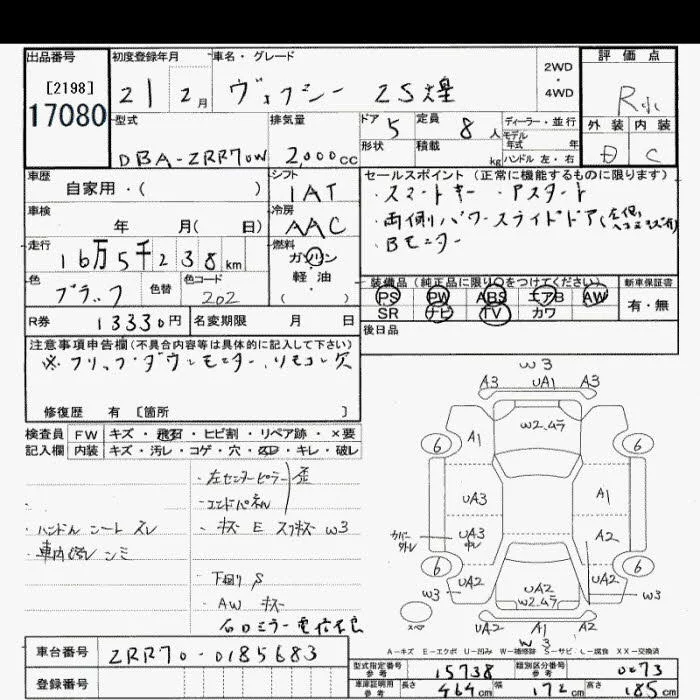 出品番号
[2198]
17080
初度登録年月
21 2月
車名・グレード
ヴォクシー ZS煌
2WD
・
4WD
評価点
R
外装 内装
D C
型式
DBA-ZRR70W
排気量
2,000cc
ドア 5
定員 8人
形状
積載 kg
ディーラー・並行
モデル
年式 年
ハンドル 左・右
車歴
自家用・( )
シフト
IAT
車検
年 月( 日)
冷房
AAC
走行
16万5千238km
燃料
ガソリン
軽・油
( ・ )
色
ブラック
色替
色コード
202
R券 13330円
名変期限 月 日
セールスポイント(正常に機能するものに限ります)
・スマートキー ・Aスタート
・両側パワースライドドア
・Bモニター
装備品(純正品に限り○をつけてください)
PS PW ABS エアB AW
SR ナビ TV カワ
新車保証書
有・無
後日品
注意事項申告欄(不具合内容等は具体的に記入して下さい)
※ フリップダウンモニター、リモコン欠
修復歴 有 [箇所 ]
検査員 FW キズ・飛石・ヒビ割・リペア跡・×要
記入欄 内装 キズ・汚レ・コゲ・穴・凹・キレ・破レ
・左センターピラー 歪
・エンドパネル
・ハンドル シート スレ
・キズ E スリキズ W3
・車内汚レ シミ
・下回り S
・AW キズ
W3
A3 UA1 A3
W2.ムラ
6 A1 6
UA3 A1
カバー
外レ
UA3 A2
6 6
W3 UA2 UA2 UA2 W3
W2.ムラ
スペア
UA2 A1 A2
W3
A-キズ E-エクボ U-凹み W-補修跡 S-サビ C-腐食 XX-交換済
車台番号 ZRR70-0185683
登録番号
型式指定番号
参考
15738
類別区分番号
参考
0073
車庫証明用
参考
長さ 464cm 幅 172cm 高さ 185cm